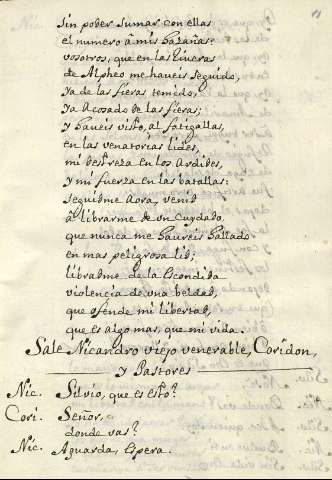 sin poder sumar con ellas
el numero â mis hazañas:
vosotros, que en las riveras
de Alpheo me haveis seguido,
ya de las fieras temido,
ya Acosado de las fieras;
y haveis visto, al fatigallas,
en las venatorias lides,
mi destreza en los Ardides,
y mi fuerza en las batallas:
seguidme Aora, venid
â librarme de un Cuydado
que nunca me haveis hallado
en mas peligrosa lid;
libradme de la escondida
violencia de una beldad,
que ofende mi libertad,
que es algo mas, que mi vida.
Sale Nicandro viejo venerable, Coridon,
y Pastores
Nic. Silvio, que es esto?
Cori. Señor,
donde vas?
Nic. Aguarda, espera.